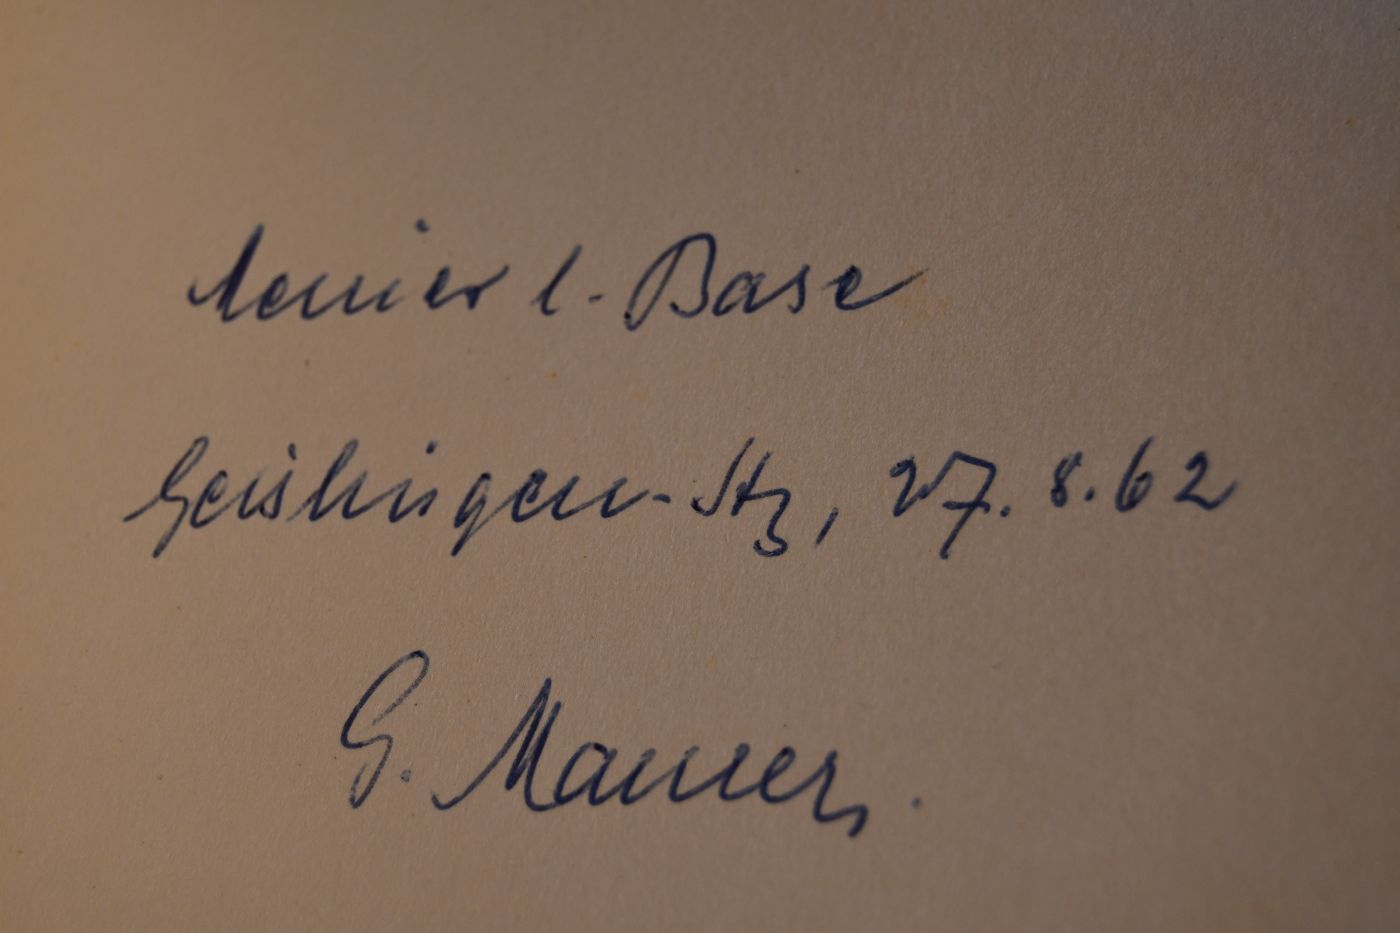 Meiner l. Base
Geislingen-Stg, 27.8.62
G. Maurer.